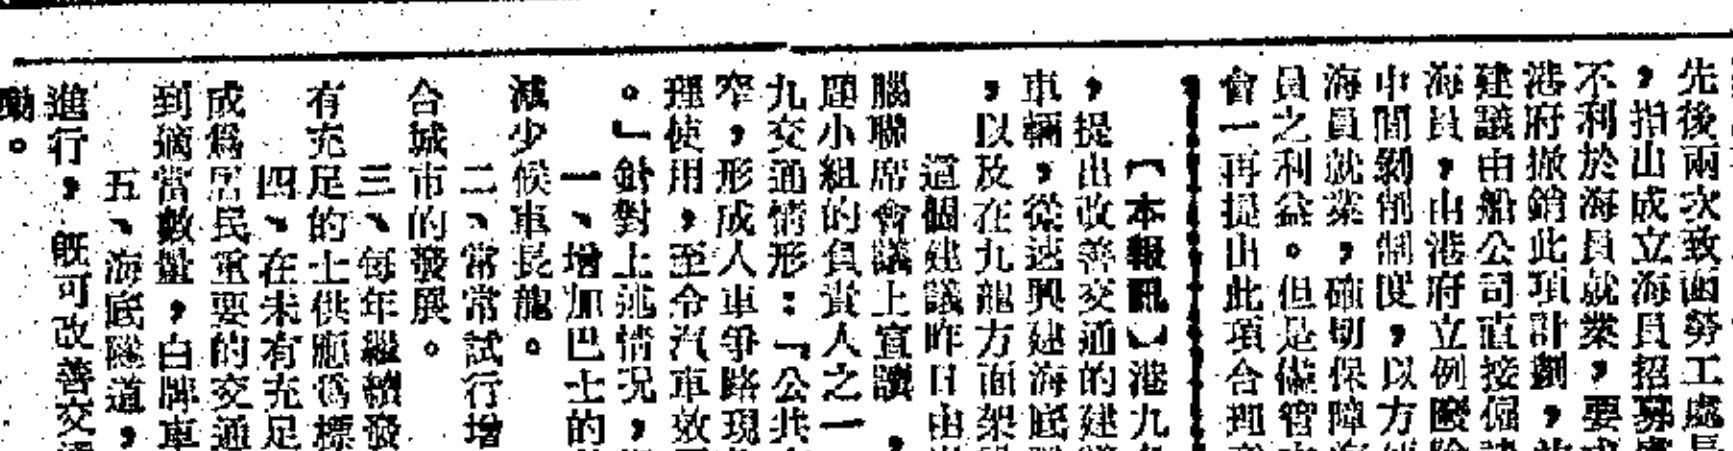 先後兩次致函勞工處長
，指出成立海員招募處
不利於海員就業，要求
港府撤銷此項計劃，並
建議由船公司直接僱請
海員，由港府立例廢除
中間剝削制度，以方便
海員就業，確切保障海
員之利益。但是儘管
會一再提出此項合理
【本報訊】港九各
，提出收善交通的建議
車輛，從速興建海底隧
，以及在九龍方面架
這個建議昨日由
腦聯席會議上宣讀，
題小組的負責人之一
九交通情形：「公共
窄，形成人車爭路現
理使用，至令汽車效
。」針對上述情況，
一、增加巴士的
減少候車長龍。
二、常常試行增
合城市的發展。
三、每年繼續發
有充足的士供應爲標
四、在未有充足
成爲居民重要的交通
到適當數量，白牌車
五、海底隧道，
進行，既可改善交通
勵。